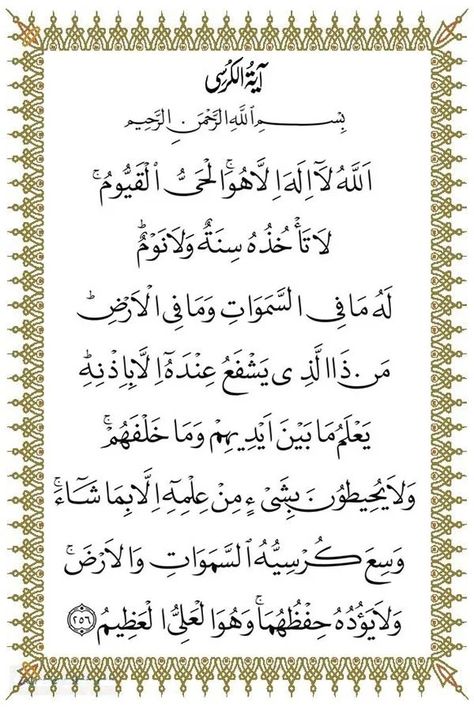 آيَةُ الْكُرْسِى
بِسْمِ اللَّهِ الرَّحْمَنِ الرَّحِيمِ
اَللَّهُ لَآ اِلَهَ اِلَّا هُوَۚ الْحَىُّ الْقَيُّومُۚ
لَا تَأْخُذُهُ سِنَةٌ وَلَا نَوْمٌۜ
لَهُ مَا فِى السَّمَوَاتِ وَمَا فِى الْاَرْضِۜ
مَنْ ذَا الَّذِى يَشْفَعُ عِنْدَهُٓ اِلَّا بِاِذْنِهِۜ
يَعْلَمُ مَا بَيْنَ اَيْدِيهِمْ وَمَا خَلْفَهُمْۚ
وَلَا يُحِيطُونَ بِشَىْءٍ مِنْ عِلْمِهِٓ اِلَّا بِمَا شَٓاءَۚ
وَسِعَ كُرْسِيُّهُ السَّمَوَاتِ وَالْاَرْضَۚ
وَلَا يَؤُدُهُ حِفْظُهُمَاۚ وَهُوَ الْعَلِىُّ الْعَظِيمُ ﴿٢٥٦﴾